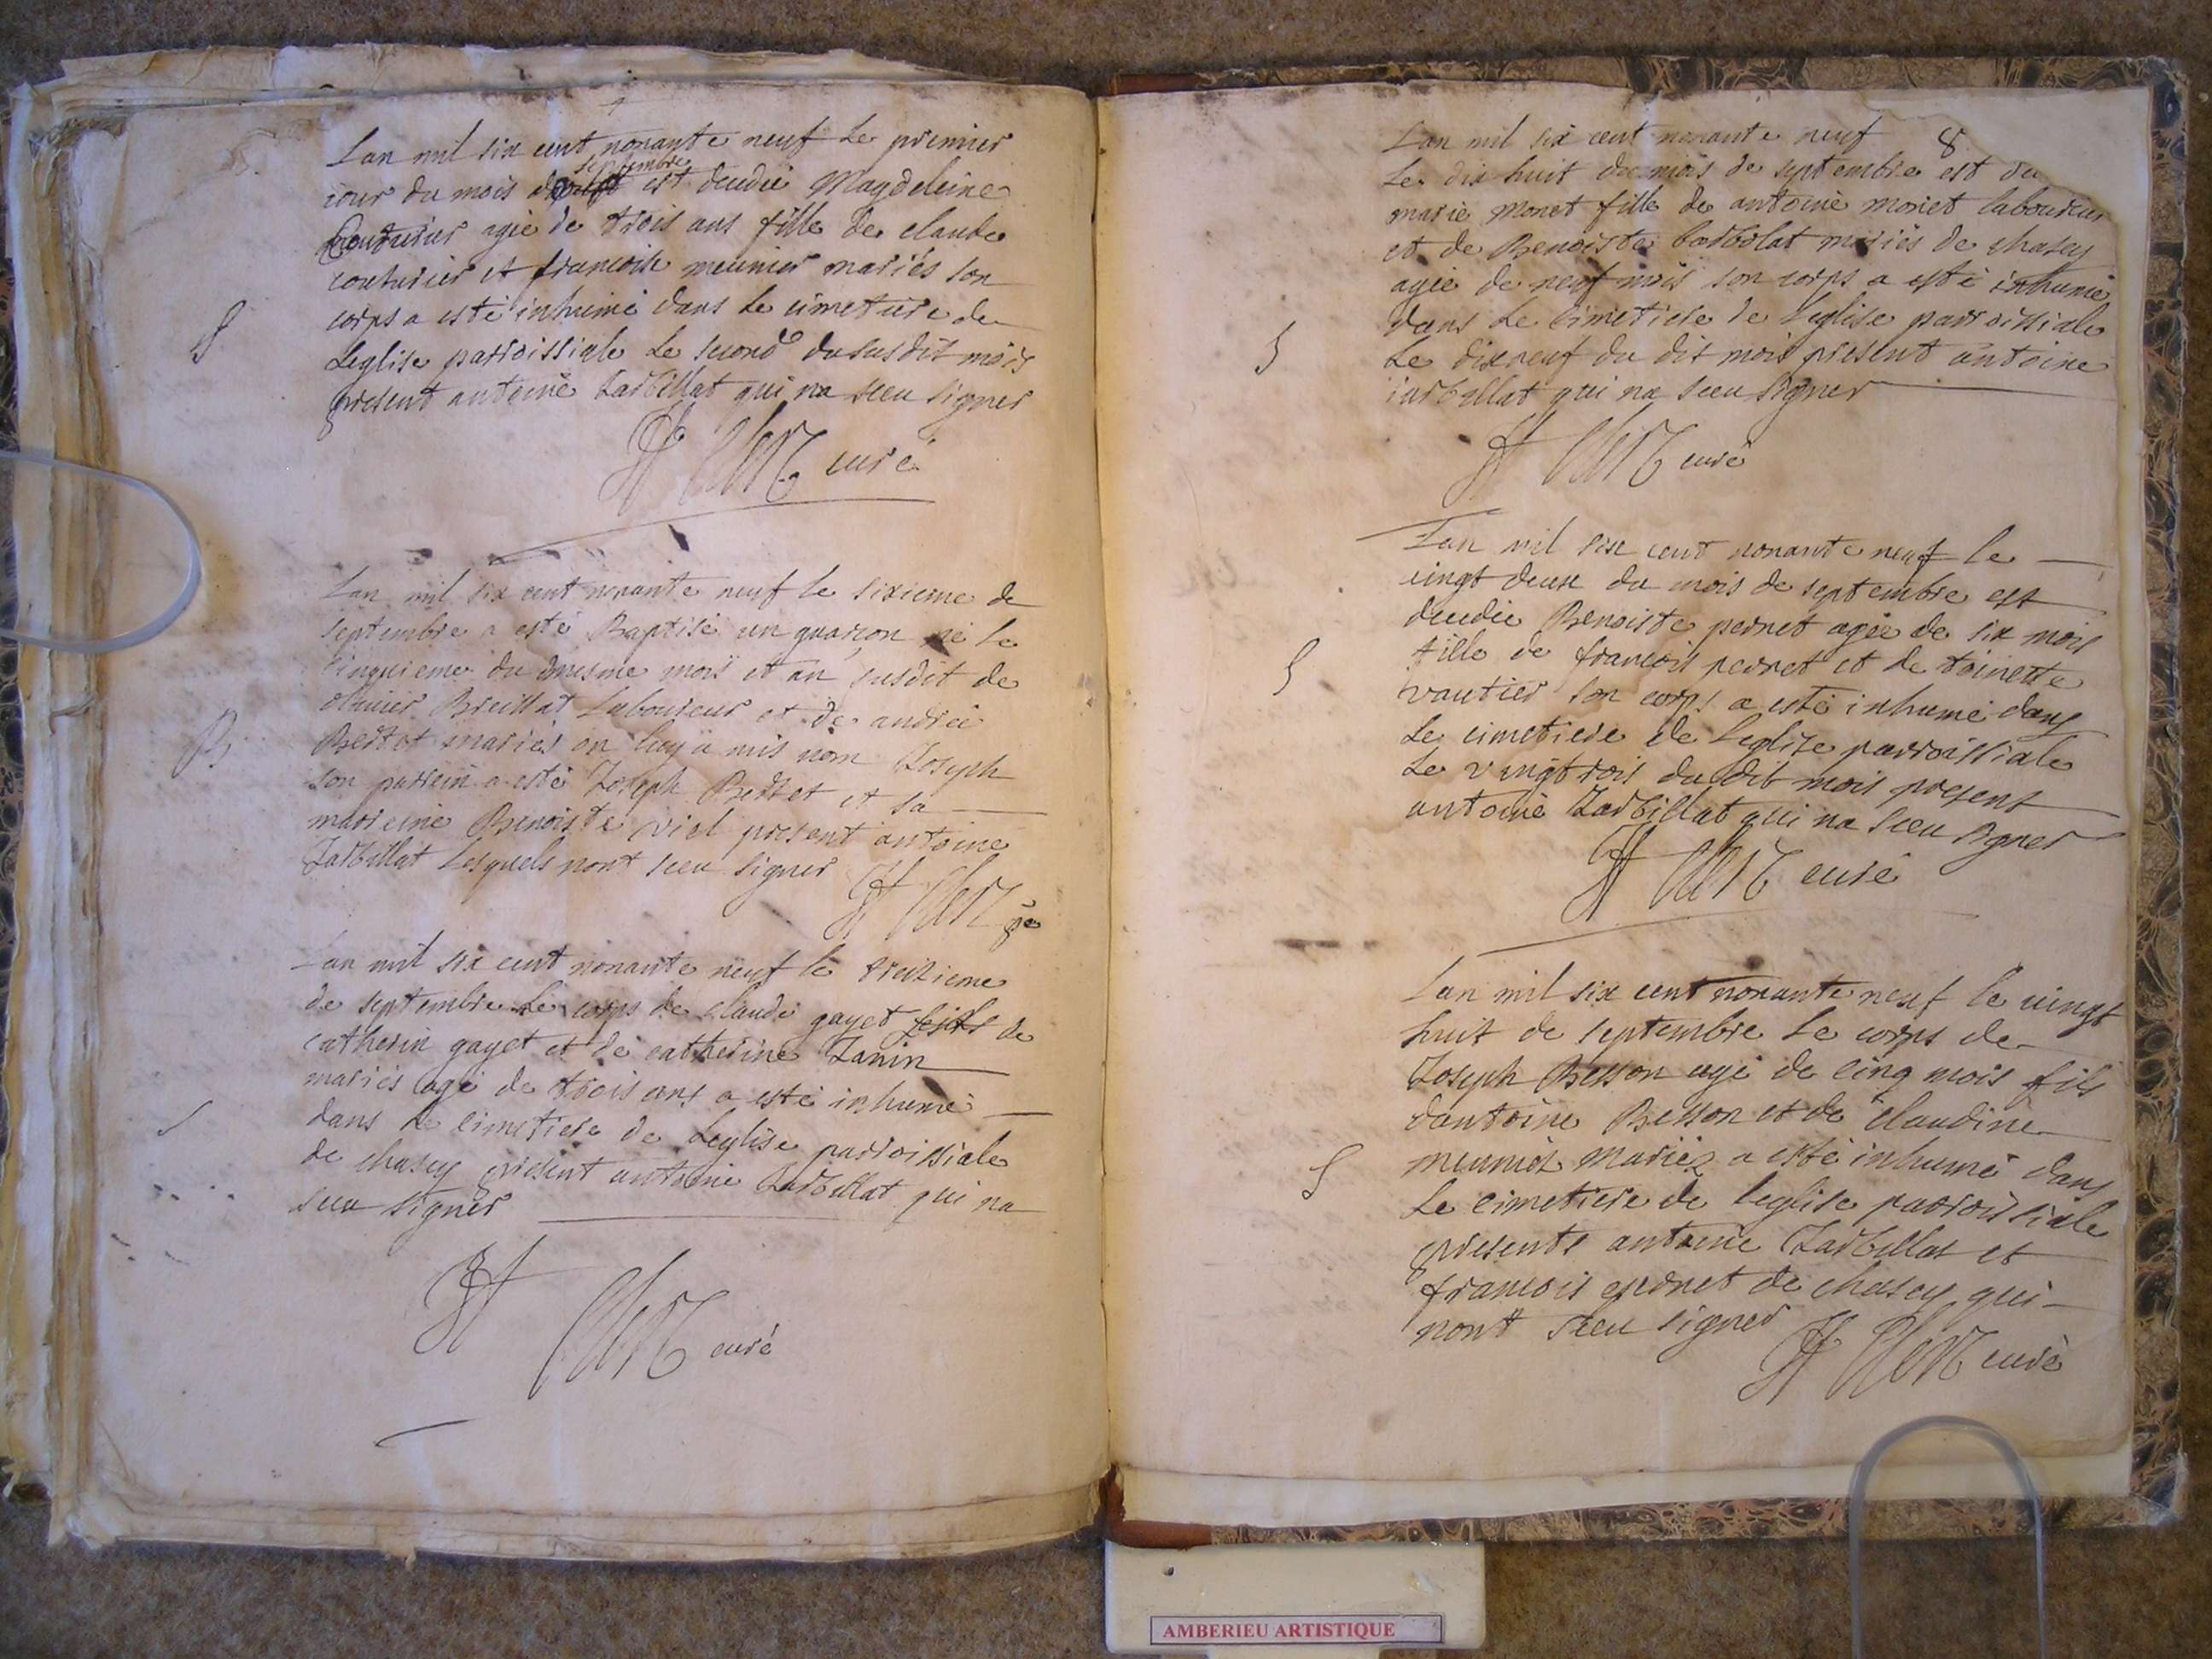 Lan mil six cent nonante neuf Le premier
iour du mois septembre est decedée Magdeleine
Couturier agée de trois ans fille de claude
couturier et francoise meunier mariés son
corps a esté inhumé dans Le cimetiere de
S
Leglise parroissiale Le second du susdit mois
present antoine Jarbillat qui na sceu signer
curé
Lan mil six cent nonante neuf le sixieme de
septembre a esté Baptisé un guarcon né le
cinquieme du mesme mois et an susdit de
Breillat Laboureur et de andrée
B
Bertet mariés on luy a mis nom Joseph
son parrein a esté Joseph Bertet et sa
marreine Benoiste viel present antoine
Jarbillat Lesquels nont sceu signer
Lan mil six cent nonante neuf le treizieme
de septembre Le corps de claude gayet de
catherin gayet et de catherine Janin
mariés agé de trois ans a esté inhumé
dans Le cimetiere de Leglise parroissiale
de chasey present antoine Jarbillat qui na
sceu signer
curé
8
Lan mil six cent nonante neuf
Le dix huit du mois de septembre est de
marie monet fille de antoine monet laboureur
et de Benoiste mariés de chasey
agée de neuf mois son corps a esté inhumé
dans Le cimetiere de Leglise parroissiale
S
Le dixneuf du dit mois present antoine
iarbillat qui na sceu signer
curé
Lan mil six cent nonante neuf le
vingt deux du mois de septembre est
decedée Benoiste pernet agée de six mois
fille de francois pernet et de toinette
S
vautier son corps a esté inhumé dans
Le cimetiere de Leglise parroissiale
Le vingtrois du dit mois present
antoine Jarbillat qui na sceu signer
curé
Lan mil six cent nonante neuf le vingt
huit de septembre Le corps de
Joseph Besson agé de cinq mois fils
dantoine Besson et de claudine
S
meunier mariéz a esté inhumé dans
Le cimetiere de Leglise parroissiale
presents antoine Jarbillat et
francois pernet de chasey qui
nont sceu signer
curé
AMBERIEU ARTISTIQUE